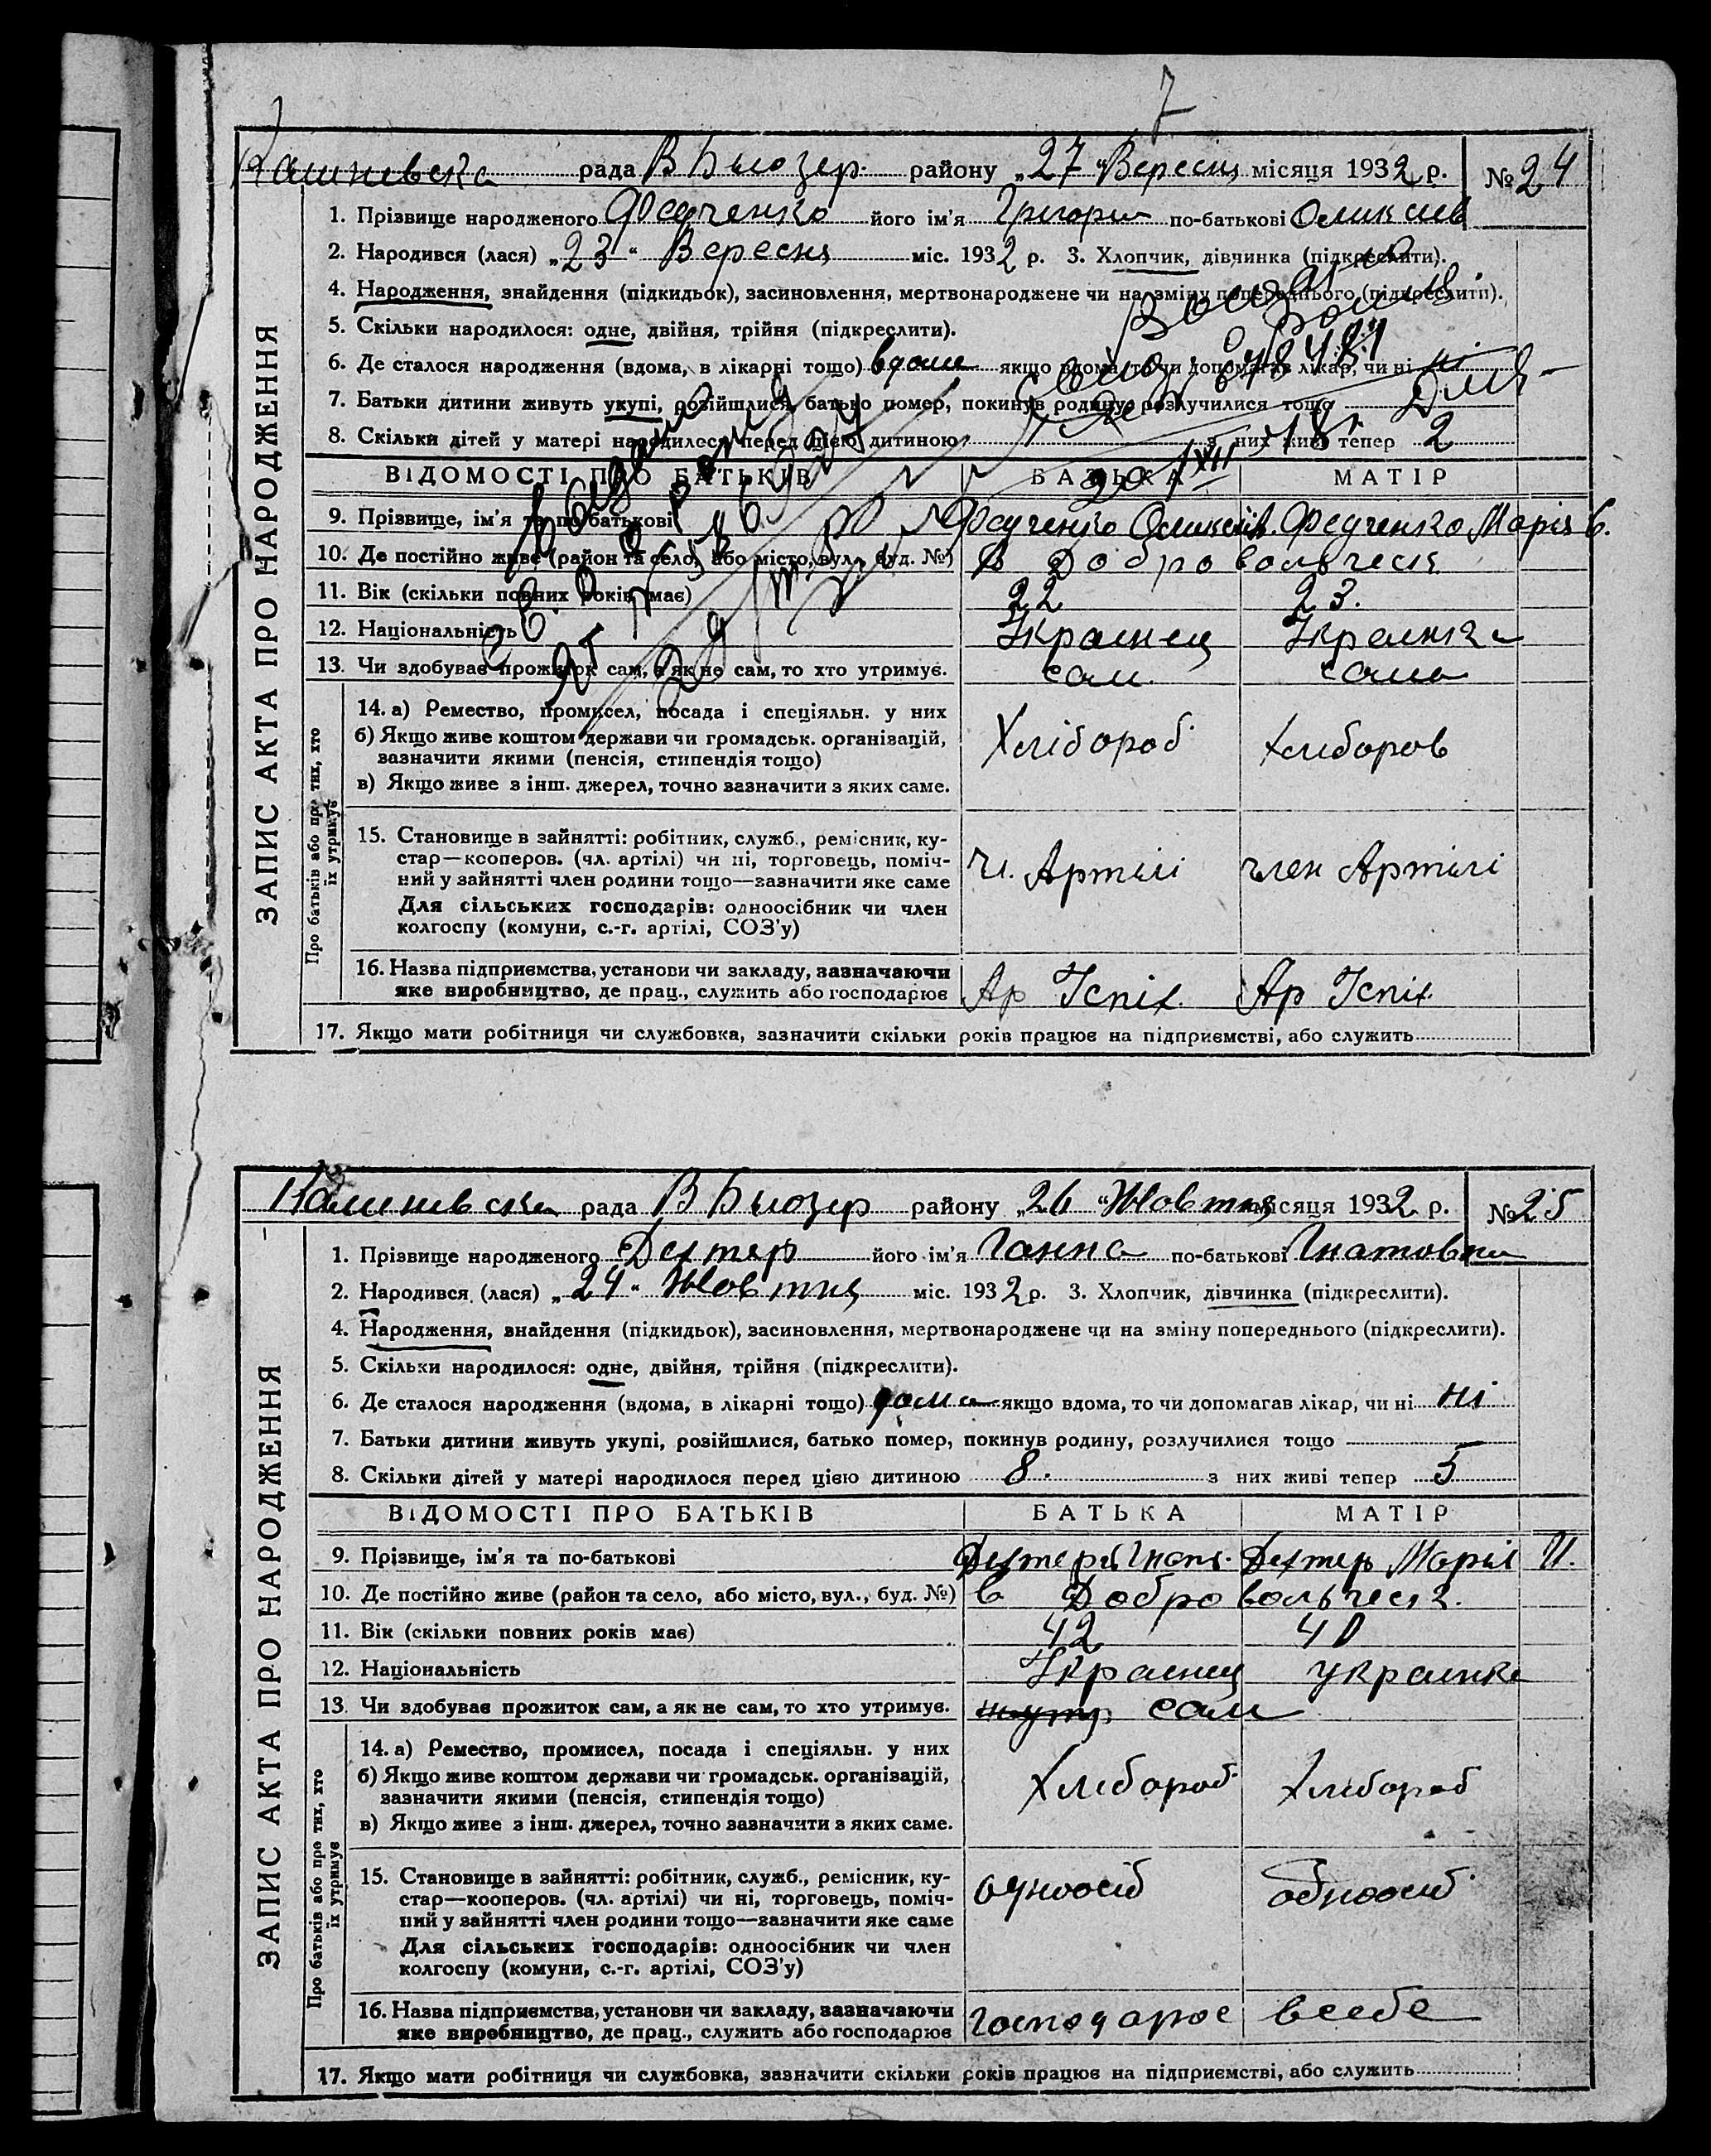 7
рада В Білозер. району „27 "Вересня місяця 1932 р. № 24
1. Прізвище народженого Федченко його ім'я Григорій по-батькові
2. Народився (лася) „23" Вересня міс. 1932 р. 3. Хлопчик, дівчинка (підкреслити).
4. Народження, знайдення (підкидьок), засиновлення, мертвонароджене чи на зміну попереднього (підкреслити).
5. Скільки народилося: одне, двійня, трійня (підкреслити).
6. Де сталося народження (вдома, в лікарні тощо) вдома якщо вдома, то чи допомагав лікар, чи ні ні
7. Батьки дитини живуть укупі, розійшлися, батько помер, покинув родину, розлучилися тощо
8. Скільки дітей у матері народилося перед цією дитиною з них живі тепер 2
ВІДОМОСТІ ПРО БАТЬКІВ БАТЬКА МАТІР
9. Прізвище, ім'я та по-батькові Федченко Федченко Марія
10. Де постійно живе (район та село, або місто, вул., буд. №) в Добровольческ.
11. Вік (скільки повних років має) 22 23.
12. Національність Украинец Украинка
13. Чи здобуває прожиток сам, а як не сам, то хто утримує. сам. сама
14. а) Ремество, промисел, посада і спеціяльн. у них
б) Якщо живе коштом держави чи громадськ. організацій,
зазначити якими (пенсія, стипендія тощо) Хлібороб хлібороб
в) Якщо живе з інш. джерел, точно зазначити з яких саме.
15. Становище в зайнятті: робітник, служб., ремісник, ку-
стар—кооперов. (чл. артілі) чи ні, торговець, поміч-
ний у зайнятті член родини тощо—зазначити яке саме Чл. Артілі член Артілі
Для сільських господарів: одноосібник чи член
колгоспу (комуни, с.-г. артілі, СОЗ'у)
16. Назва підприємства, установи чи закладу, зазначаючи
яке виробництво, де прац., служить або господарює Ар Успіх. Ар Успіх.
17. Якщо мати робітниця чи службовка, зазначити скільки років працює на підприємстві, або служить
ЗАПИС АКТА ПРО НАРОДЖЕННЯ
Про батьків або про тих, хто
їх утримує
рада В Білозер району „26 "Жовтня місяця 1932 р. № 25
1. Прізвище народженого Дехтер його ім'я Ганна по-батькові Гнатовна
2. Народився (лася) „24" Жовтня міс. 1932 р. 3. Хлопчик, дівчинка (підкреслити).
4. Народження, знайдення (підкидьок), засиновлення, мертвонароджене чи на зміну попереднього (підкреслити).
5. Скільки народилося: одне, двійня, трійня (підкреслити).
6. Де сталося народження (вдома, в лікарні тощо) дома якщо вдома, то чи допомагав лікар, чи ні ні
7. Батьки дитини живуть укупі, розійшлися, батько помер, покинув родину, розлучилися тощо
8. Скільки дітей у матері народилося перед цією дитиною 8. з них живі тепер 5
ВІДОМОСТІ ПРО БАТЬКІВ БАТЬКА МАТІР
9. Прізвище, ім'я та по-батькові Дехтер Гнат. Дехтер Марія И.
10. Де постійно живе (район та село, або місто, вул., буд. №) в Добровольческ.
11. Вік (скільки повних років має) 42 40
12. Національність Украинец украинка
13. Чи здобуває прожиток сам, а як не сам, то хто утримує. сам
14. а) Ремество, промисел, посада і спеціяльн. у них
б) Якщо живе коштом держави чи громадськ. організацій,
зазначити якими (пенсія, стипендія тощо) Хлібороб хлібороб
в) Якщо живе з інш. джерел, точно зазначити з яких саме.
15. Становище в зайнятті: робітник, служб., ремісник, ку-
стар—кооперов. (чл. артілі) чи ні, торговець, поміч-
ний у зайнятті член родини тощо—зазначити яке саме одноосіб одноосіб
Для сільських господарів: одноосібник чи член
колгоспу (комуни, с.-г. артілі, СОЗ'у)
16. Назва підприємства, установи чи закладу, зазначаючи
яке виробництво, де прац., служить або господарює господарює всебе
17. Якщо мати робітниця чи службовка, зазначити скільки років працює на підприємстві, або служить
ЗАПИС АКТА ПРО НАРОДЖЕННЯ
Про батьків або про тих, хто
їх утримує